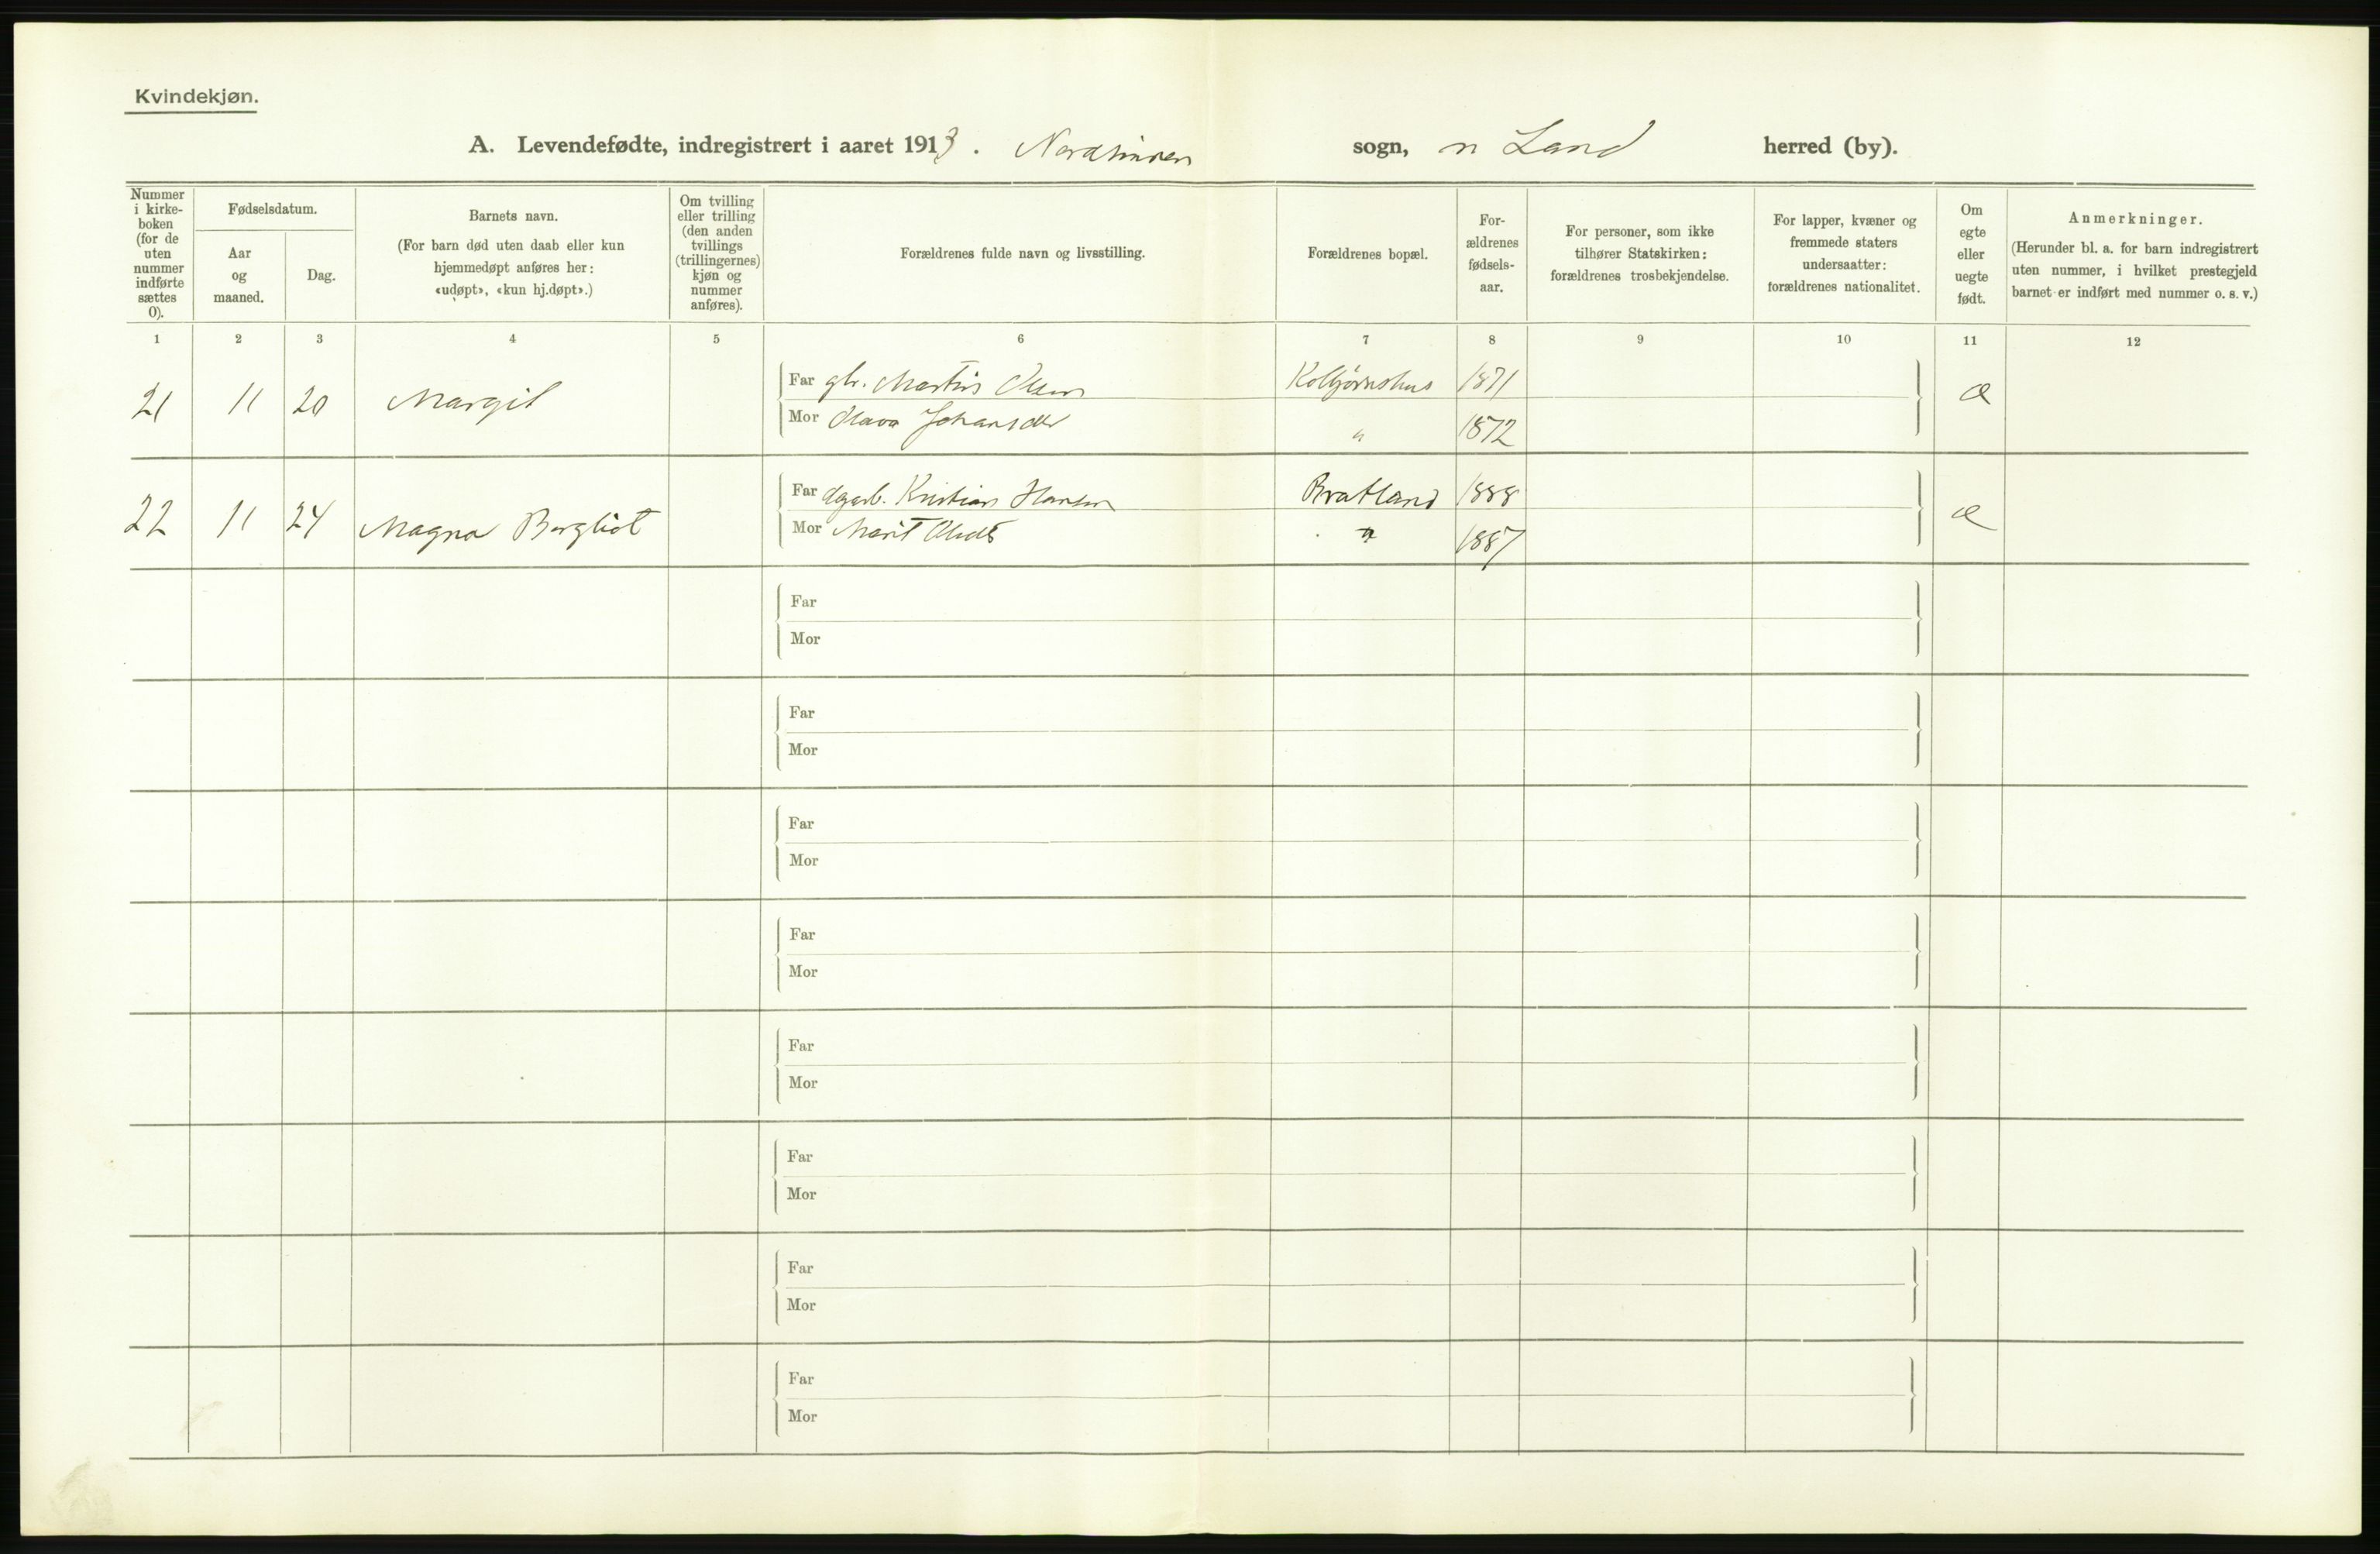 Kvindekjøn.
A. Levendefødte, indregistrert i aaret 1913. Nordsinden sogn, n Land herred (by).
Nummer i kirke-boken (for de uten nummer indførte sættes 0).
Fødselsdatum.
Aar og maaned.
Dag.
Barnets navn.
(For barn død uten daab eller kun hjemmedøpt anføres her: «udøpt», «kun hj.døpt».)
Om tvilling eller trilling (den anden tvillings (trillingernes) kjøn og nummer anføres).
Forældrenes fulde navn og livsstilling.
Forældrenes bopæl.
For-ældrenes fødsels-aar.
For personer, som ikke tilhører Statskirken: forældrenes trosbekjendelse.
For lapper, kvæner og fremmede staters undersaatter: forældrenes nationalitet.
Om egte eller uegte født.
Anmerkninger.
(Herunder bl. a. for barn indregistrert uten nummer, i hvilket prestegjeld barnet er indført med nummer o. s. v.)
1 2 3 4 5 6 7 8 9 10 11 12
21 11 20 Margit Far gbr. Martin Olsen Kolbjørnshus 1871 æ
Mor Johansdtr " 1872
22 11 24 Magna Bergliot Far dagarb. Kristian Hansen Bratland 1888 æ
Mor Marit " 1887
Far
Mor
Far
Mor
Far
Mor
Far
Mor
Far
Mor
Far
Mor
Far
Mor
Far
Mor